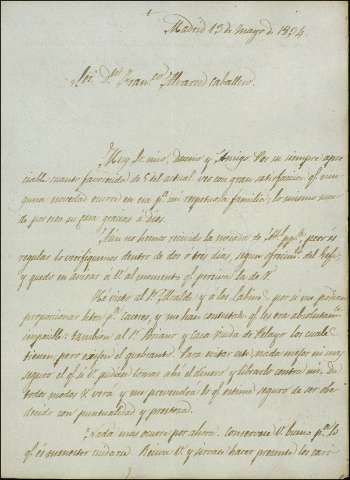 Madrid 13 de Mayo de 1834.
Sor. Dn. Franco. Alvarez Caballero.
Muy Sr. mio, Dueño y Amigo: Por su siempre apre-
ciable cuanto favorecida de 5 del actual veo con gran satisfaccion qe. nin-
guna novedad ocurre en esa pa. mi respectiva familia; lo mismo suce-
de por esta su casa gracias a Dios.
Aun no hemos recivido la mesada de pero es
regular lo verifiquemos dentro de dos o tres dias, segun
y quedo en avisar a V. al momento qe. perciva la de V.
He visto al Sr. Alcalde y a los Cabino, por si me podian
proporcionar letra pa. Caceres, y me han contestado qe. les era absolutamte.
imposible: tambien al Sr. Soriano y casa Viuda de Pelayo los cuales
tienen, pero el quebranto. Para evitar este, nada mejor ni mas
seguro el qe. si V. pudiera tomar ahi el dinero y librarlo contra mi. De
todos modos V. vera y me prevendrá lo qe. estime seguro de ser obe-
decido con puntualidad y presteza.
Nada mas ocurre por ahora. Conservese V. bueno pa. lo
qe. es menester cuidarse. Reciva V. y sirvase hacer presente los cari-